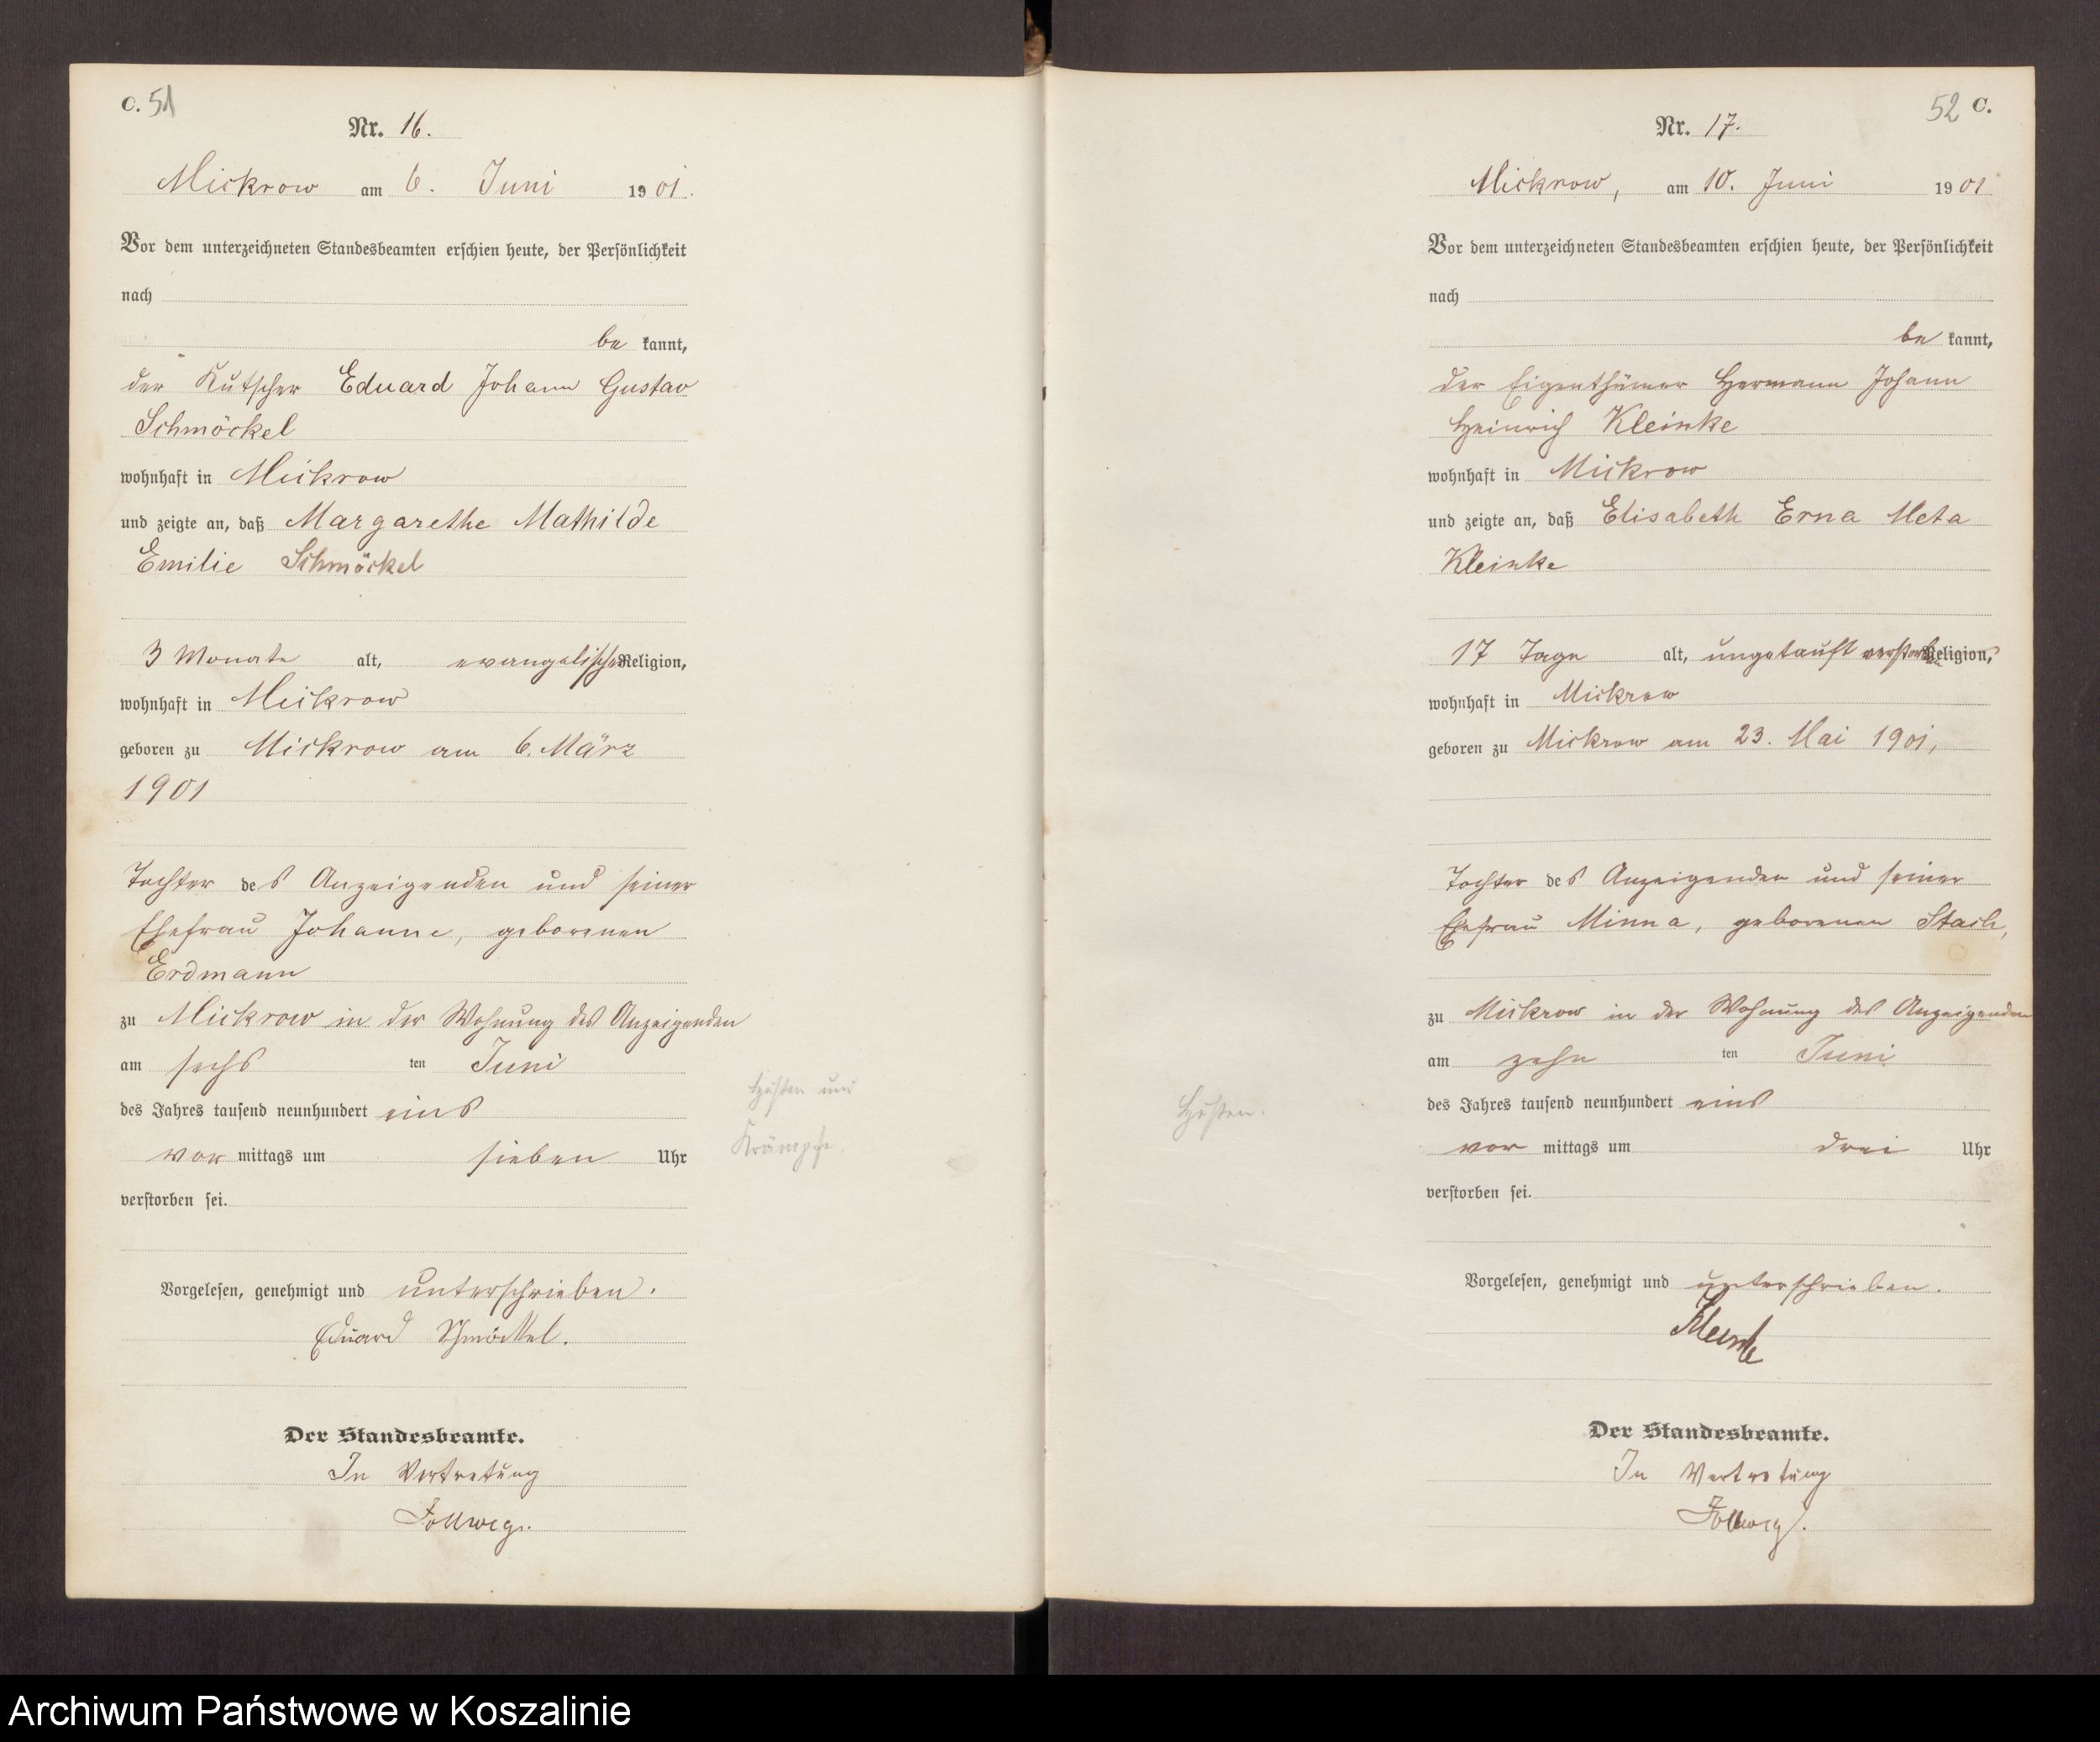 C. 51
Nr. 16.
Mickrow am 6. Juni 1901.
Vor dem unterzeichneten Standesbeamten erschien heute, der Persönlichkeit
nach
be kannt,
der Kutscher Eduard Johann Gustav
Schmöckel
wohnhaft in Mickrow
und zeigte an, daß Margarethe Mathilde
Emilie Schmöckel
3 Monate alt, evangelischer Religion,
wohnhaft in Mickrow
geboren zu Mickrow am 6. März
1901
Tochter des Anzeigenden und seiner
Ehefrau Johanne, geborenen
Erdmann
zu Mickrow in der Wohnung des Anzeigenden
am sechs ten Juni
des Jahres tausend neunhundert eins
vor mittags um sieben Uhr
verstorben sei.
Husten und
Krämpfe.
Vorgelesen, genehmigt und unterschrieben.
Eduard Schmöckel.
Der Standesbeamte.
In Vertretung
52 C.
Nr. 17.
Mickrow, am 10. Juni 1901
Vor dem unterzeichneten Standesbeamten erschien heute, der Persönlichkeit
nach
be kannt,
der Eigenthümer Hermann Johann
Heinrich Kleinke
wohnhaft in Mickrow
und zeigte an, daß Elisabeth Erna Meta
Kleinke
17 Tage alt, ungetauft verstorben Religion,
wohnhaft in Mickrow
geboren zu Mickrow am 23. Mai 1901,
Tochter des Anzeigenden und seiner
Ehefrau Minna, geborenen Stach,
zu Mickrow in der Wohnung des Anzeigenden
am zehn ten Juni
des Jahres tausend neunhundert eins
vor mittags um drei Uhr
verstorben sei.
Husten.
Vorgelesen, genehmigt und unterschrieben.
Kleinke
Der Standesbeamte.
In Vertretung
Archiwum Państwowe w Koszalinie